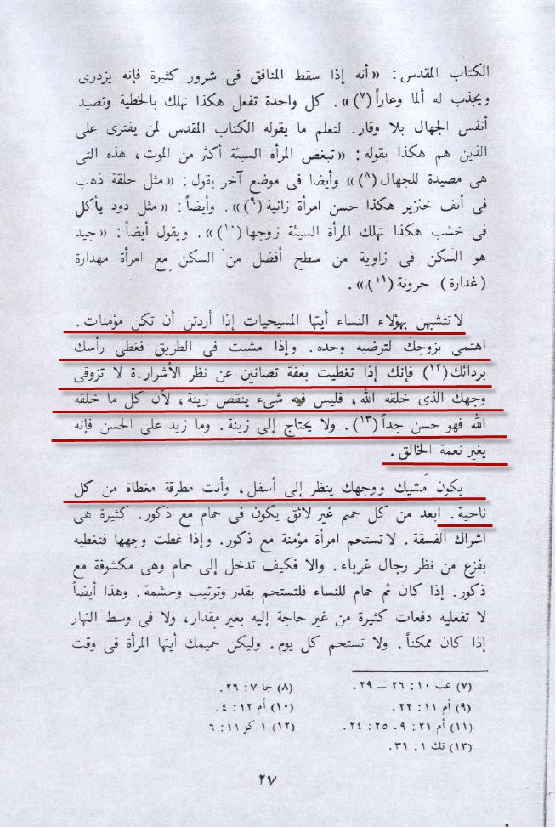 الكتاب المقدس: «أنه إذا سقط المنافق فى شرور كثيرة فإنه يزدرى
ويجذب له ألما وعاراً(٧)». كل واحدة تفعل هكذا تهلك بالخطية وتصيد
أنفس الجهال بلا وقار. لتعلم ما يقوله الكتاب المقدس لمن يفترى على
الذين هم هكذا بقوله: «تبغض المرأه السيئة أكثر من الموت، هذه التى
هى مصيدة للجهال(٨)» وأيضا فى موضع آخر يقول: «مثل حلقة ذهب
فى أنف خنزير هكذا حسن امرأة زانية(٩)». وأيضاً: «مثل دود يأكل
فى خشب هكذا تهلك المرأة السيئة زوجها(١٠)». ويقول أيضاً: «جيد
هو السكن فى زاوية من سطح أفضل من السكن مع امرأة مهدارة
(غدارة) حرونة(١١)».
لا تتشبهن بهؤلاء النساء أيتها المسيحيات إذا أردتن أن تكن مؤمنات.
اهتمى بزوجك لترضيه وحده. وإذا مشيت فى الطريق فغطى رأسك
بردائك(١٢) فإنك إذا تغطيت بعفة تصانين عن نظر الأشرار. لا تزوقى
وجهك الذى خلقه الله، فليس فيه شىء ينقص زينة، لأن كل ما خلقه
الله فهو حسن جداً(١٣). ولا يحتاج إلى زينة. وما زيد على الحسن فإنه
يغير نعمة الخالق.
يكون مشيك ووجهك ينظر إلى أسفل، وأنت مطرقة مغطاة من كل
ناحية. ابعد من كل حميم غير لائق يكون فى حمام مع ذكور. كثيرة هى
أشراك الفسقة. لا تستحم امرأة مؤمنة مع ذكور. وإذا غطت وجهها فتغطيه
بفزع من نظر رجال غرباء. والا فكيف تدخل إلى حمام وهى مكشوفة مع
ذكور. إذا كان ثم حمام للنساء فلتستحم بقدر وترتيب وحشمة. وهذا أيضاً
لا تفعليه دفعات كثيرة من غير حاجة إليه بغير مقدار، ولا فى وسط النهار
إذا كان ممكناً. ولا تستحم كل يوم. وليكن حميمك أيتها المرأة فى وقت
(٧) عب ١٠: ٢٦ – ٢٩.
(٨) جا ٧: ٢٩.
(٩) أم ١١: ٢٢.
(١٠) أم ١٢: ٤.
(١١) أم ٢١: ٩. ٢٥: ٢٤.
(١٢) ١ كر ١١: ٦
(١٣) تك ١. ٣١.
٢٧